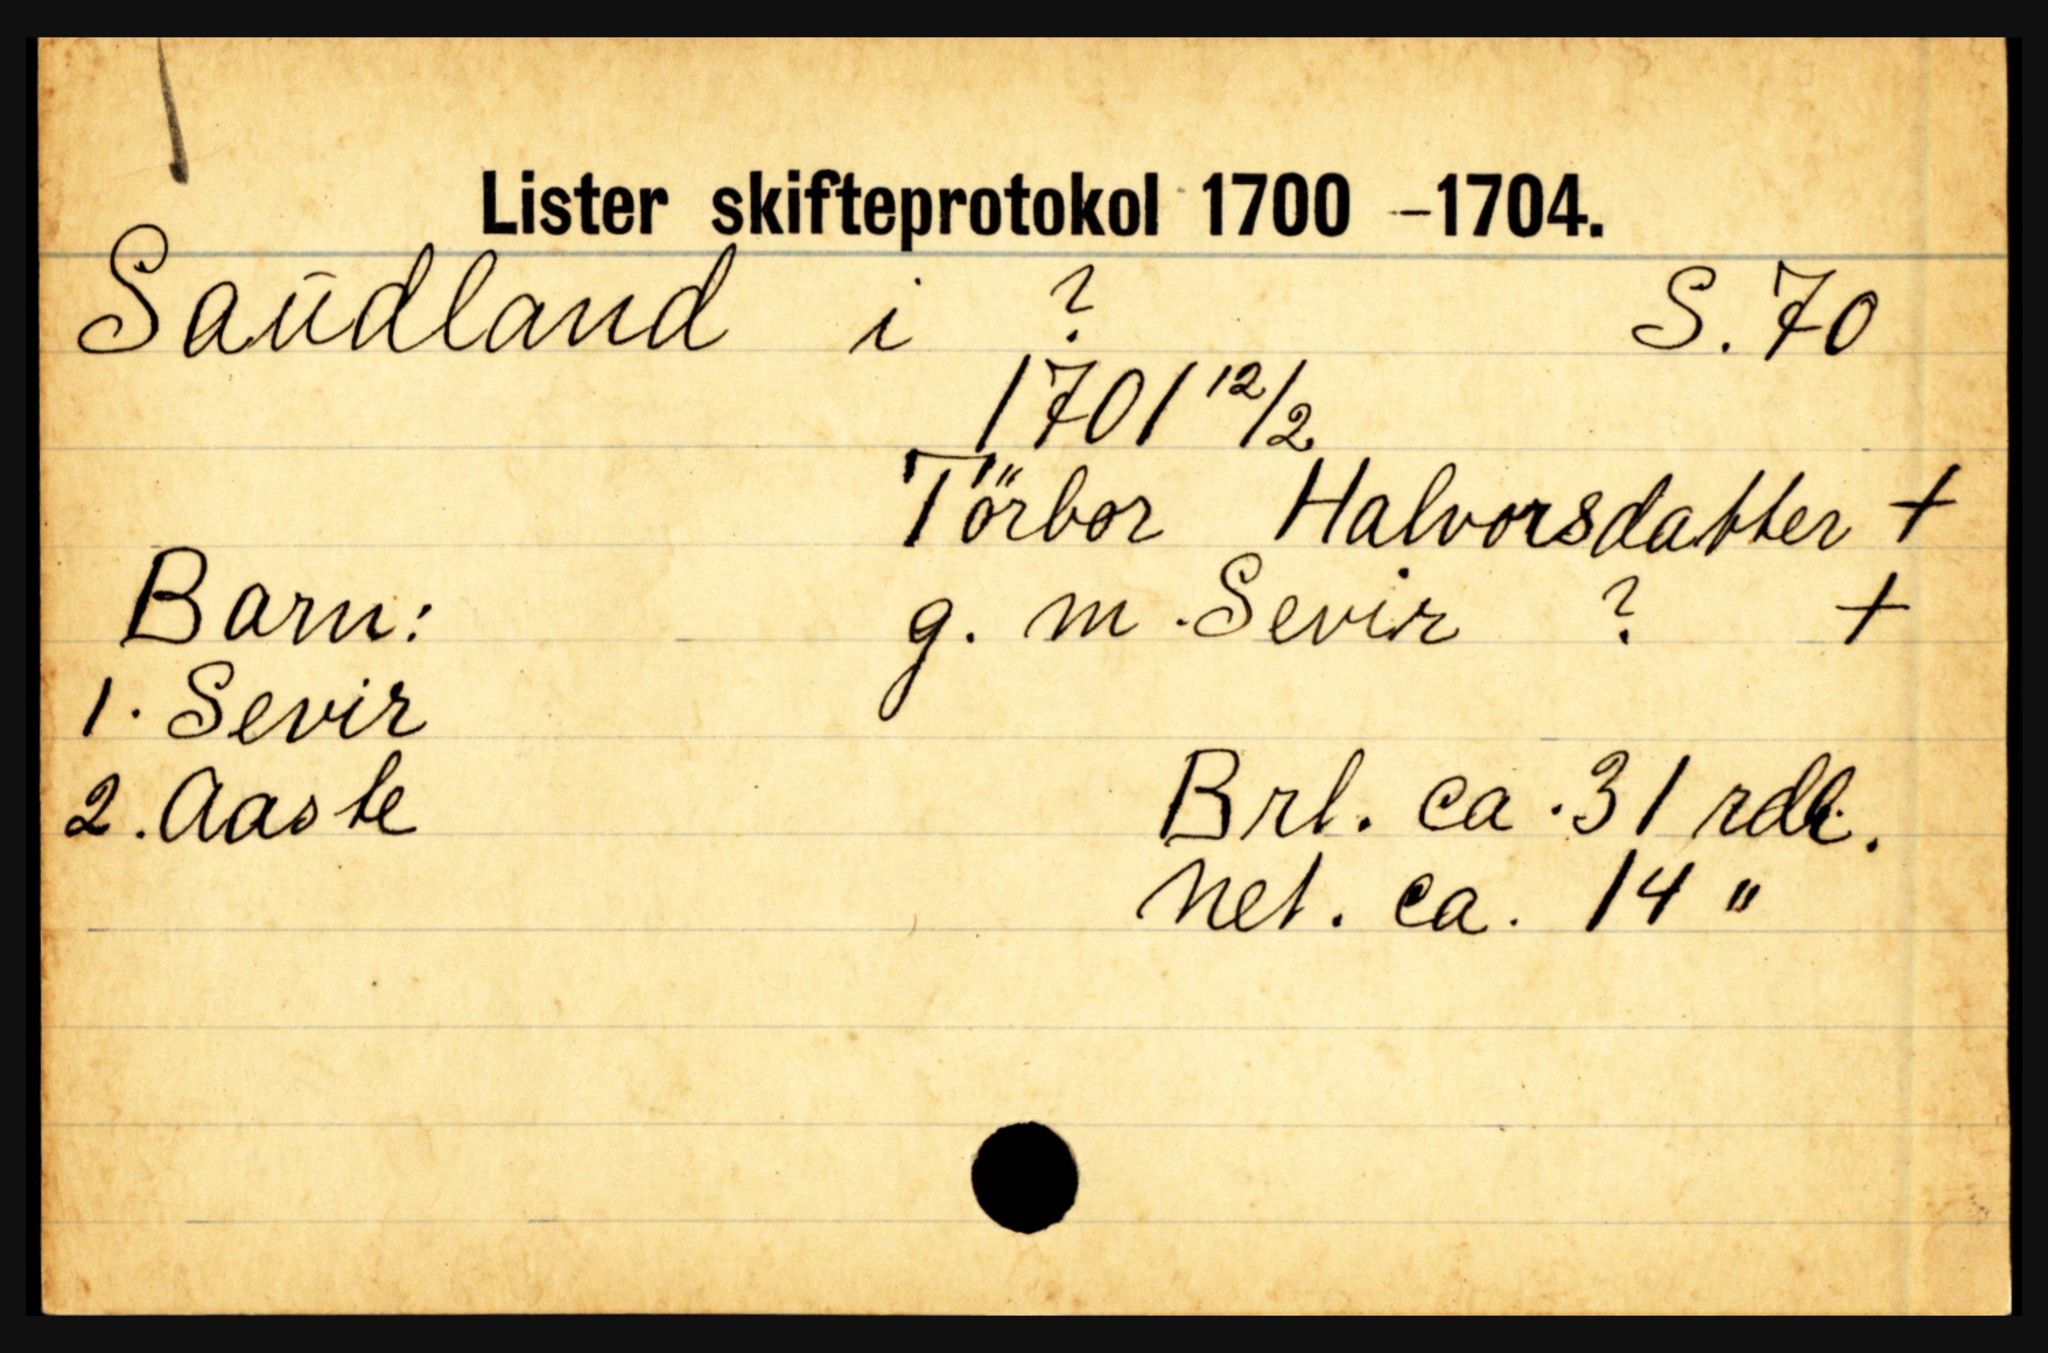 Lister skifteprotokol 1700 - 1704.
Saudland i ? S. 70
1701 12/2
Törbor Halvorsdatter +
Barn: g. m. Sevir ? +
1. Sevir
2. Aaste Brt. ca. 31 rdl.
net. ca. 14 "